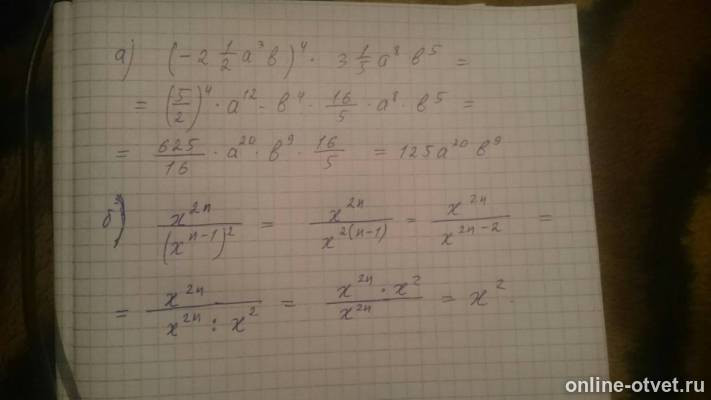 а) (-2 1/2 a³ в)⁴ · 3 1/5 a⁸ в⁵ =
= (5/2)⁴ · a¹² · в⁴ · 16/5 · a⁸ · в⁵ =
= 625/16 · a²⁰ · в⁹ · 16/5 = 125 a²⁰ в⁹
б) x²ⁿ/(xⁿ⁻¹)² = x²ⁿ/x²⁽ⁿ⁻¹⁾ = x²ⁿ/x²ⁿ⁻² =
= x²ⁿ/(x²ⁿ : x²) = x²ⁿ · x²/x²ⁿ = x².
online-otvet.ru